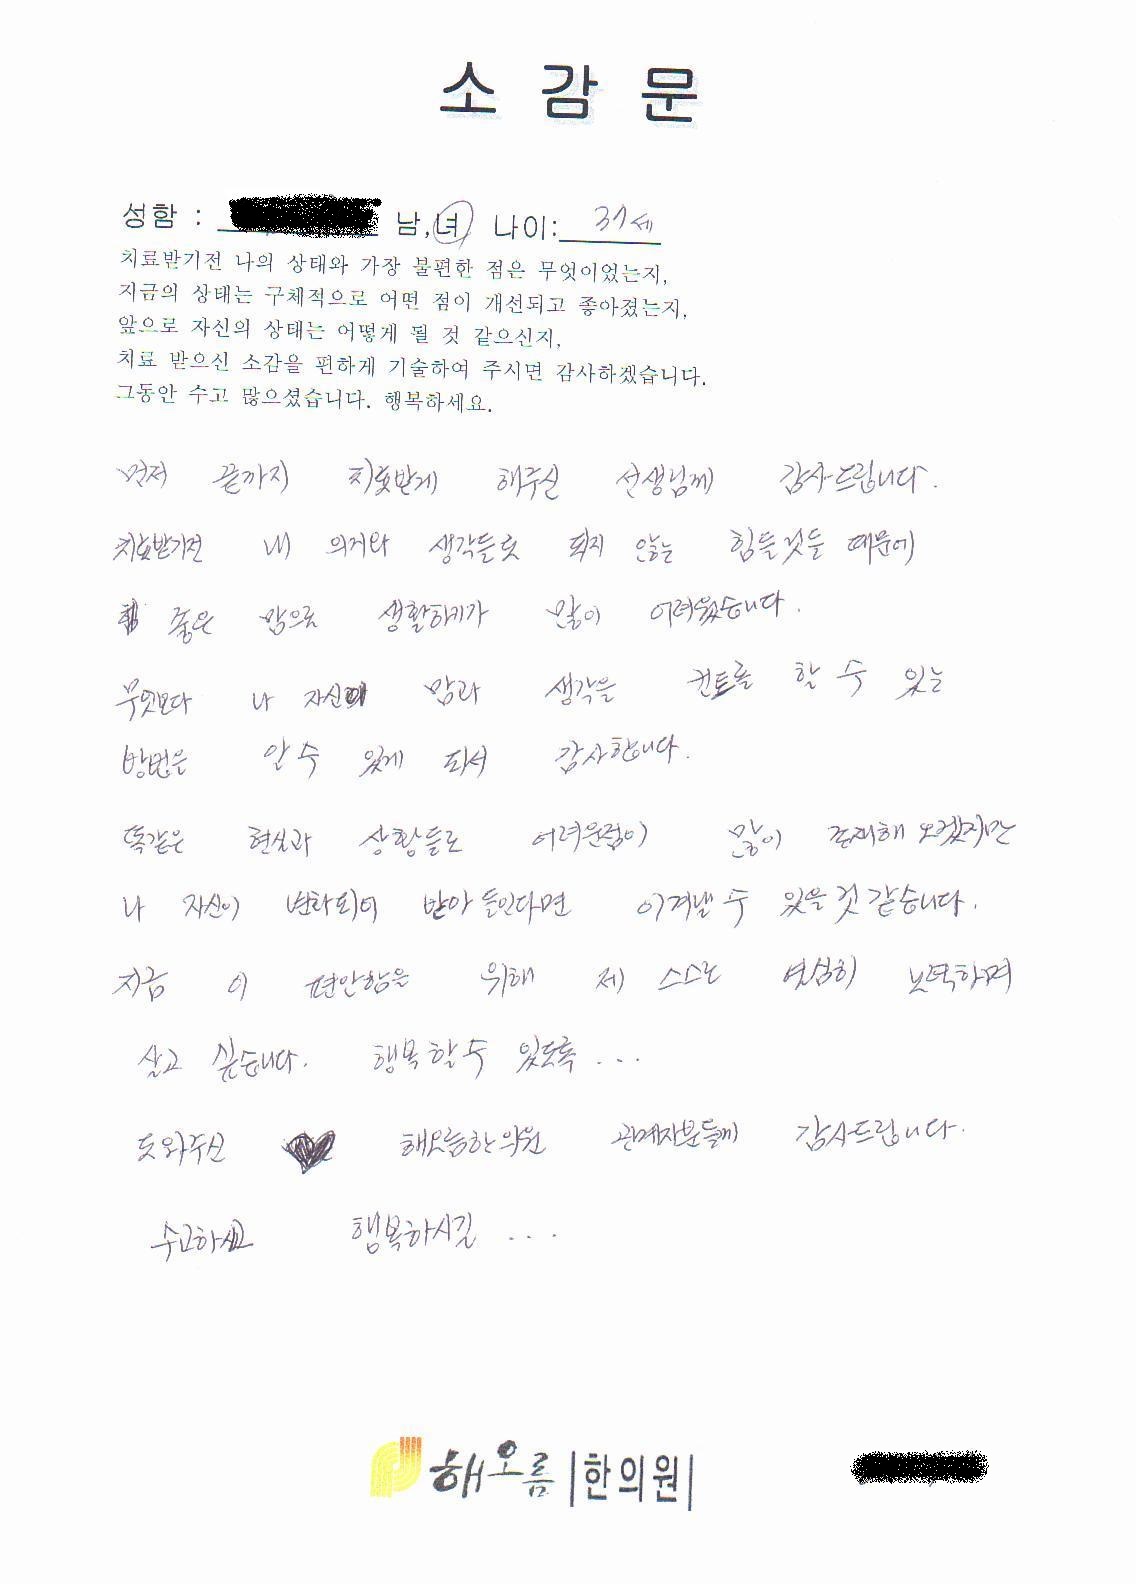 소감문
성함 : 남,녀 나이: 37세
치료받기전 나의 상태와 가장 불편한 점은 무엇이었는지,
지금의 상태는 구체적으로 어떤 점이 개선되고 좋아졌는지,
앞으로 자신의 상태는 어떻게 될 것 같으신지,
치료 받으신 소감을 편하게 기술하여 주시면 감사하겠습니다.
그동안 수고 많으셨습니다. 행복하세요.
먼저 끝까지 치료받게 해주신 선생님께 감사드립니다.
치료받기전 내 의지와 생각들로 되지 않는 힘들것들 때문에
좋은 맘으로 생활하기가 많이 어려웠습니다.
무엇보다 나 자신의 맘과 생각을 컨트롤 할 수 있는
방법은 알 수 있게 되서 감사합니다.
똑같은 현실과 상황들로 어려운점이 많이 존재해 오겠지만
나 자신이 변화되어 받아 들인다면 이겨낼 수 있을 것 같습니다.
지금 이 편안함을 위해 제 스스로 열심히 노력하며
살고 싶습니다. 행복할 수 있도록 ...
도와주신 해오름한의원 관계자분들께 감사드립니다.
수고하시고 행복하시길 ...
해오름 |한의원|